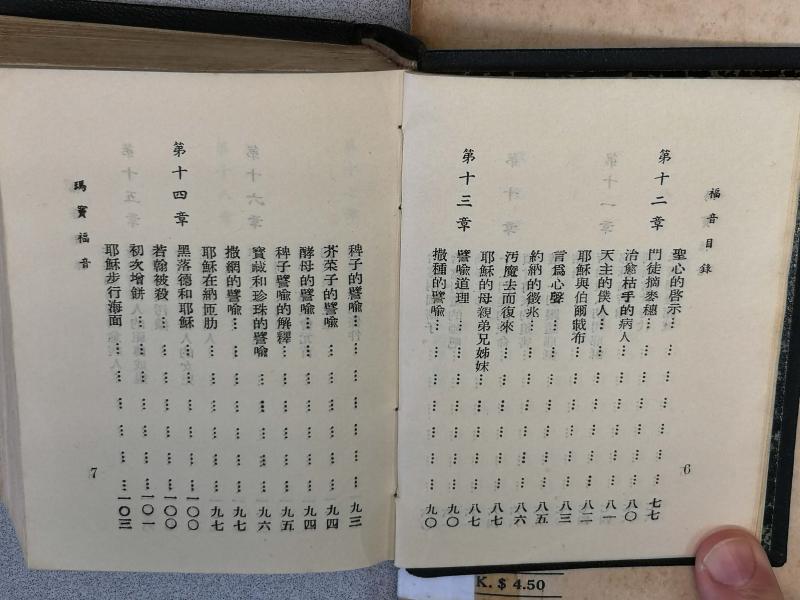 福音目錄
6
聖心的啓示…………………七七
第十二章
門徒摘麥穗…………………八〇
治愈枯手的病人…………………八一
天主的僕人…………………八二
耶穌與伯爾載布…………………八三
言爲心聲…………………八五
約納的徵兆…………………八六
污魔去而復來…………………八七
耶穌的母親弟兄姊妹…………………八七
第十三章
譬喻道理…………………九〇
撒種的譬喻…………………九〇
稗子的譬喻…………………九三
芥菜子的譬喻…………………九四
酵母的譬喻…………………九四
稗子譬喻的解釋…………………九五
寶藏和珍珠的譬喻…………………九六
撒網的譬喻…………………九七
耶穌在納匝肋…………………九七
第十四章
黑落德和耶穌…………………一〇〇
若翰被殺…………………一〇〇
初次增餅…………………一〇一
耶穌步行海面…………………一〇三
瑪竇福音
7
K. $ 4.50